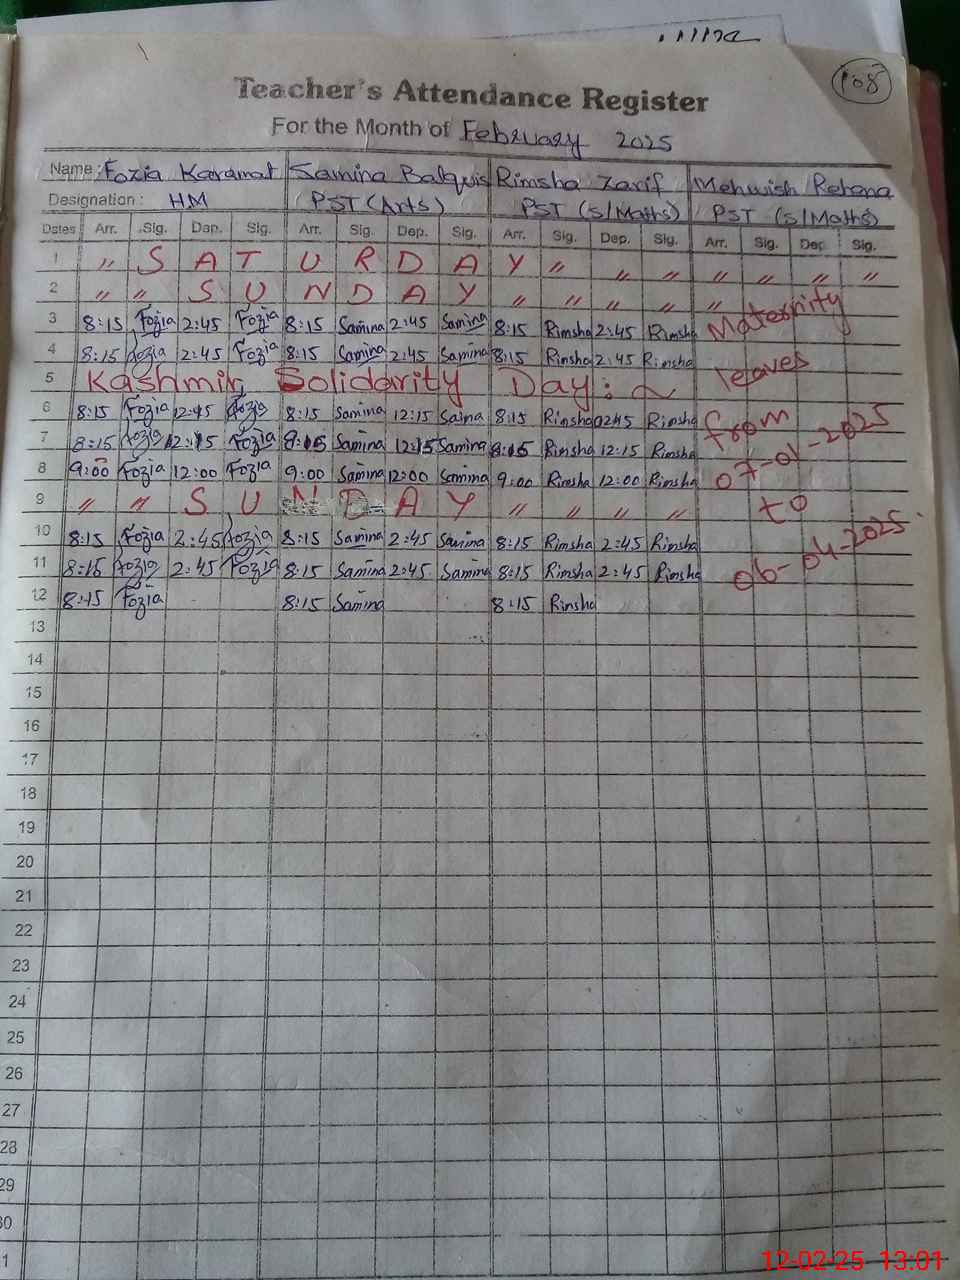 108
Teacher's Attendance Register
For the Month of February 2025
Name: Fozia Karamat Samina Balquis Rimsha Zarif Mehwish Rehana
Designation: HM PST (Arts) PST (S/Maths) PST (S/Maths)
Dates Arr. Sig. Dep. Sig. Arr. Sig. Dep. Sig. Arr. Sig. Dep. Sig. Arr. Sig. Dep. Sig.
1 " S A T U R D A Y " " " " " " " "
2 " " S U N D A Y " " " " "
3 8:15 Fozia 2:45 Fozia 8:15 Samina 2:45 Samina 8:15 Rimsha 2:45 Rimsha Maternity
4 8:15 Fozia 2:45 Fozia 8:15 Samina 2:45 Samina 8:15 Rimsha 2:45 Rimsha leaves
5 Kashmir Solidarity Day:
6 8:15 Fozia Fozia 8:15 Samina 12:15 Samina 8:15 Rimsha Rimsha from
7 8:15 Fozia 12:15 Fozia 8:15 Samina 12:15 Samina 8:15 Rimsha 12:15 Rimsha 07-01-2025
8 9:00 Fozia 12:00 Fozia 9:00 Samina 12:00 Samina 9:00 Rimsha 12:00 Rimsha
9 " " S U N D A Y " " " " to
10 8:15 Fozia 2:45 Fozia 8:15 Samina 2:45 Samina 8:15 Rimsha 2:45 Rimsha
11 8:15 Fozia 2:45 Fozia 8:15 Samina 2:45 Samina 8:15 Rimsha 2:45 Rimsha 06-04-2025
12 8:15 Fozia 8:15 Samina 8:15 Rimsha
13
14
15
16
17
18
19
20
21
22
23
24
25
26
27
28
29
30
1
12-02-25 13:01